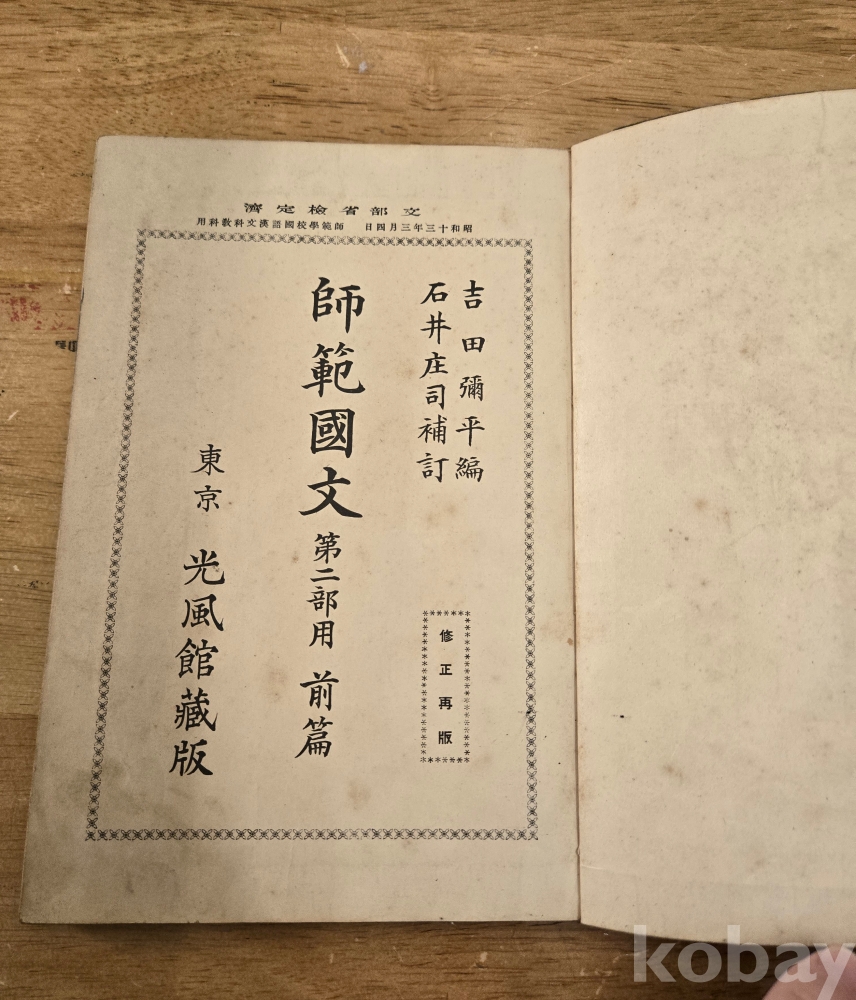 文部省檢定濟
昭和十三年三月四日 師範學校國語漢文科敎科用
吉田彌平編
石井庄司補訂
修正再版
師範國文 第二部用 前篇
東京 光風館藏版
kobay